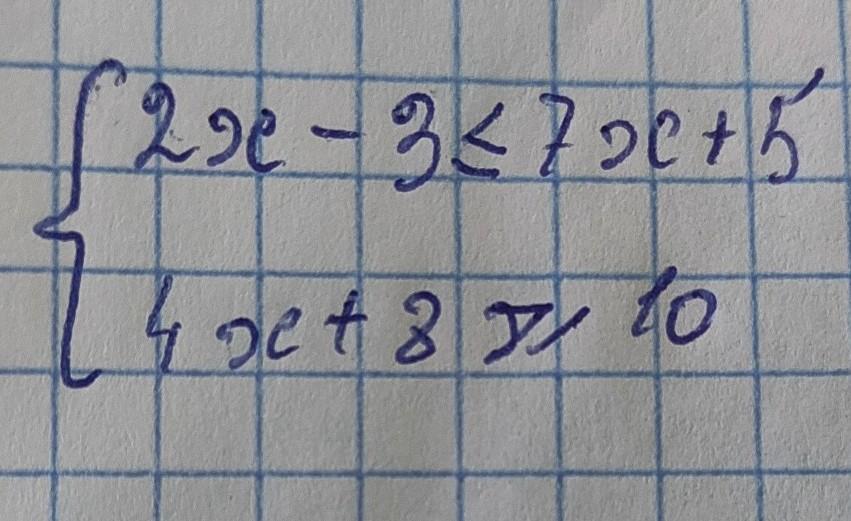 2x - 3 ≤ 7x + 5
4x + 8 ≥ 10